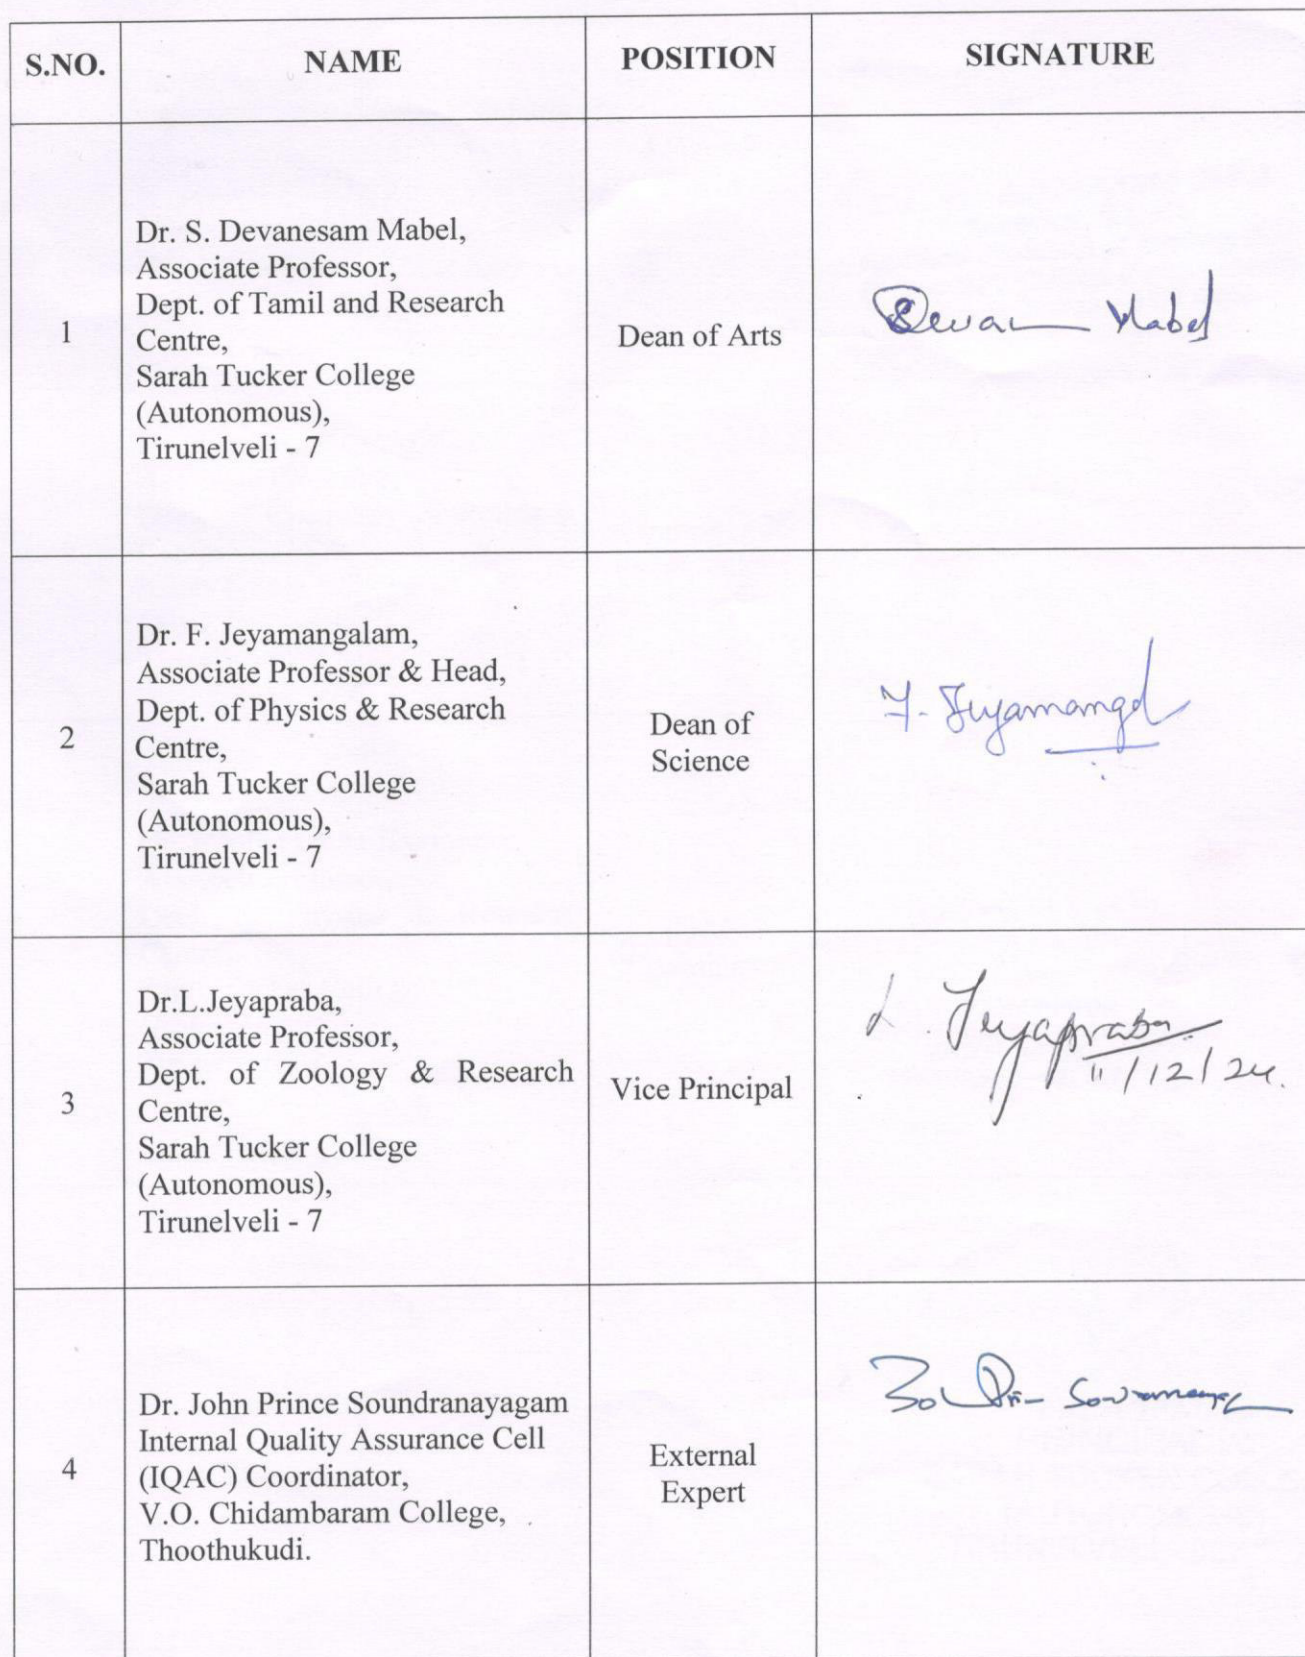 S.NO. NAME POSITION SIGNATURE
1
Dr. S. Devanesam Mabel,
Associate Professor,
Dept. of Tamil and Research
Centre,
Sarah Tucker College
(Autonomous),
Tirunelveli - 7
Dean of Arts
Mabel
2
Dr. F. Jeyamangalam,
Associate Professor & Head,
Dept. of Physics & Research
Centre,
Sarah Tucker College
(Autonomous),
Tirunelveli - 7
Dean of
Science
F. Jeyamangal
3
Dr.L.Jeyapraba,
Associate Professor,
Dept. of Zoology & Research
Centre,
Sarah Tucker College
(Autonomous),
Tirunelveli - 7
Vice Principal
L. Jeyapraba
11/12/24.
4
Dr. John Prince Soundranayagam
Internal Quality Assurance Cell
(IQAC) Coordinator,
V.O. Chidambaram College,
Thoothukudi.
External
Expert